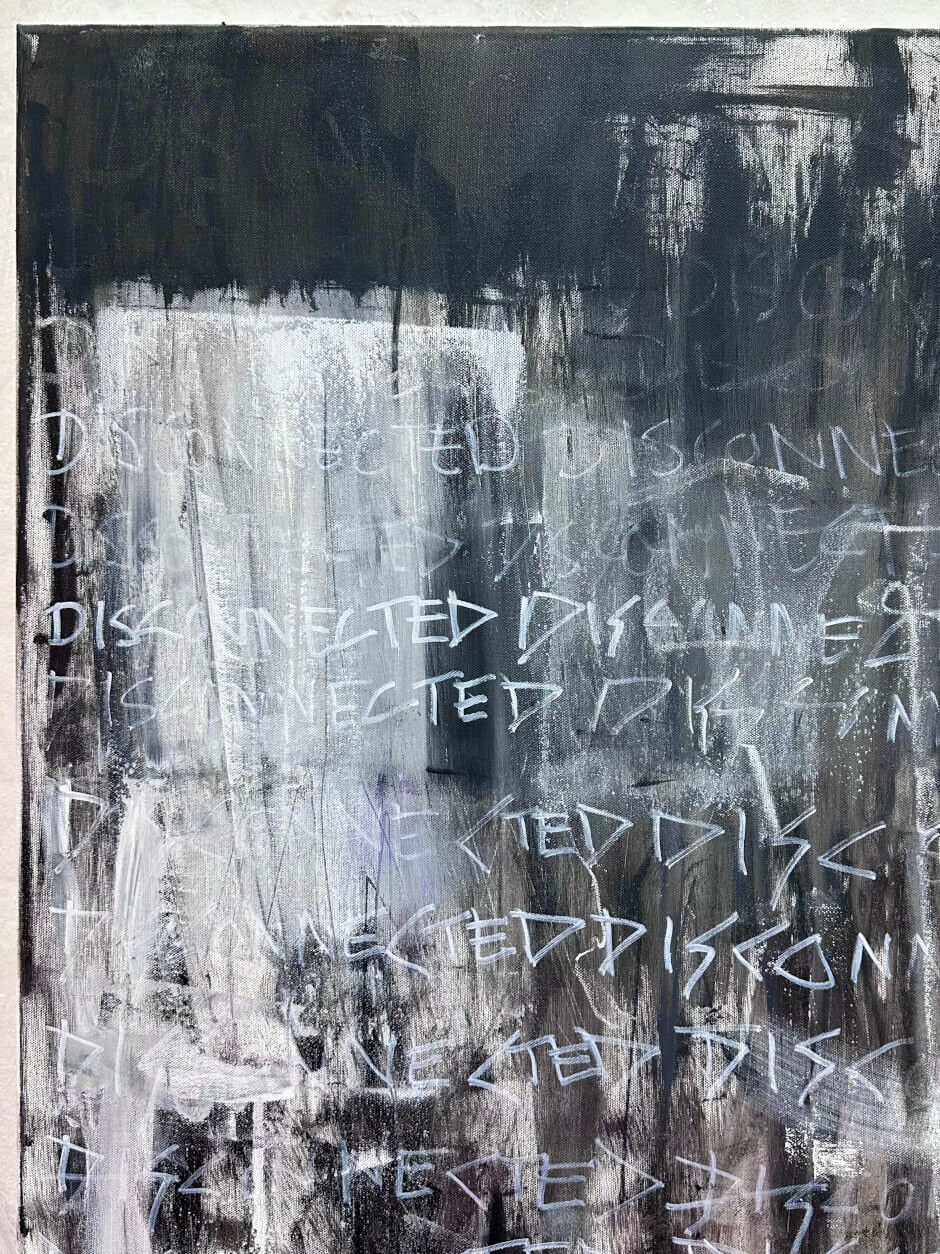 DISCONNECTED DISCONNE
DISCONNECTED DISCONNECT
DISCONNECTED DISCONNECT
DISCONNECTED DISCONN
DISCONNECTED DISC
DISCONNECTED DISCONN
DISCONNECTED DISC
DISCONNECTED DISCO